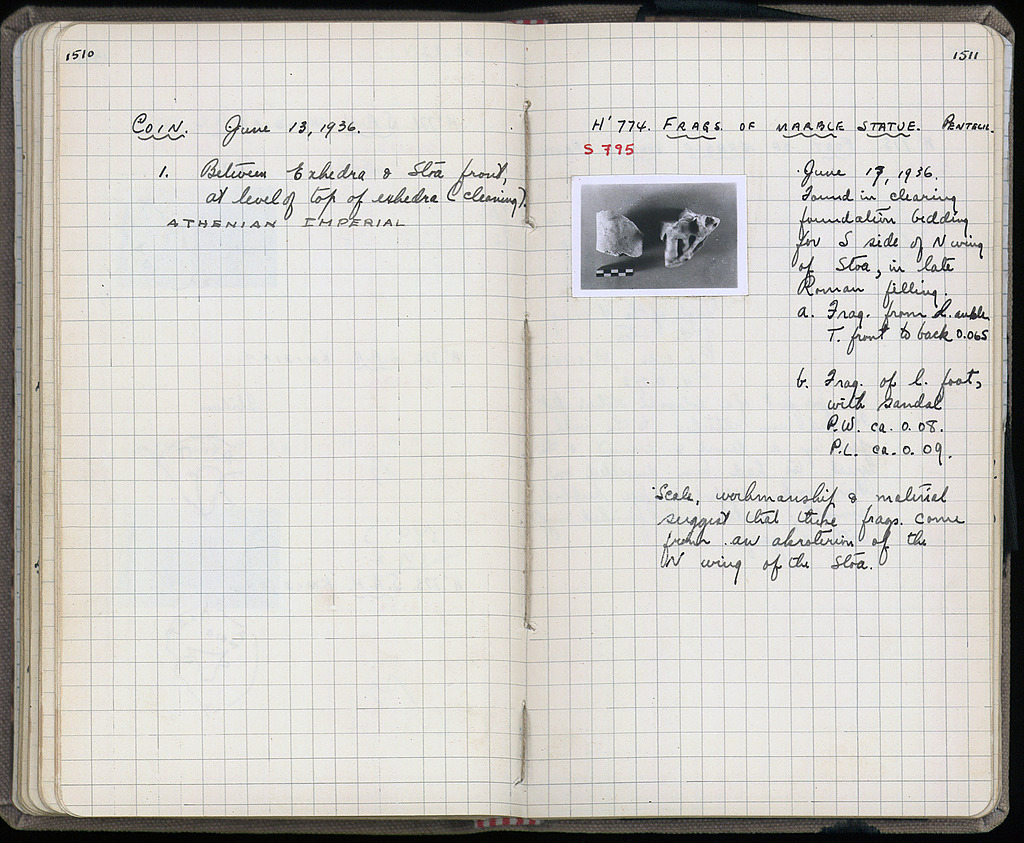 1510
COIN. June 13, 1936.
1. Between Exhedra & Stoa front,
at level of top of exhedra (cleaning).
ATHENIAN IMPERIAL
1511
H' 774. FRAGS. OF MARBLE STATUE. PENTELIC.
S 795
June 17, 1936.
Found in clearing
foundation bedding
for S side of N wing
of Stoa, in late
Roman filling.
a. Frag. from l. ankle
T. front to back 0.065
b. Frag. of l. foot,
with sandal
P.W. ca. 0.08.
P.L. ca. 0.09.
Scale, workmanship & material
suggest that these frags. come
from an akroterion of the
N wing of the Stoa.